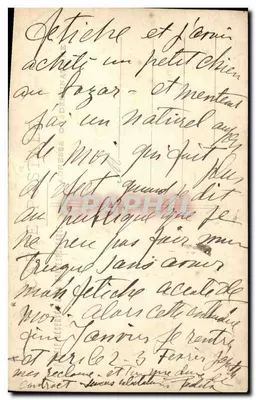 fetiche et j'avais
acheté un petit chien
au bazar - et maintenant
j'ai un naturel auprès
de moi qui fait plus
d'effet quand je dit
au publique que je
ne peu pas faire mon
truque sans avoir
mon fetiche a coté de
moi - alors cette
fin Janvier je rentre
et vers le 2-3 Fevrier
mes reclame - et
contract -